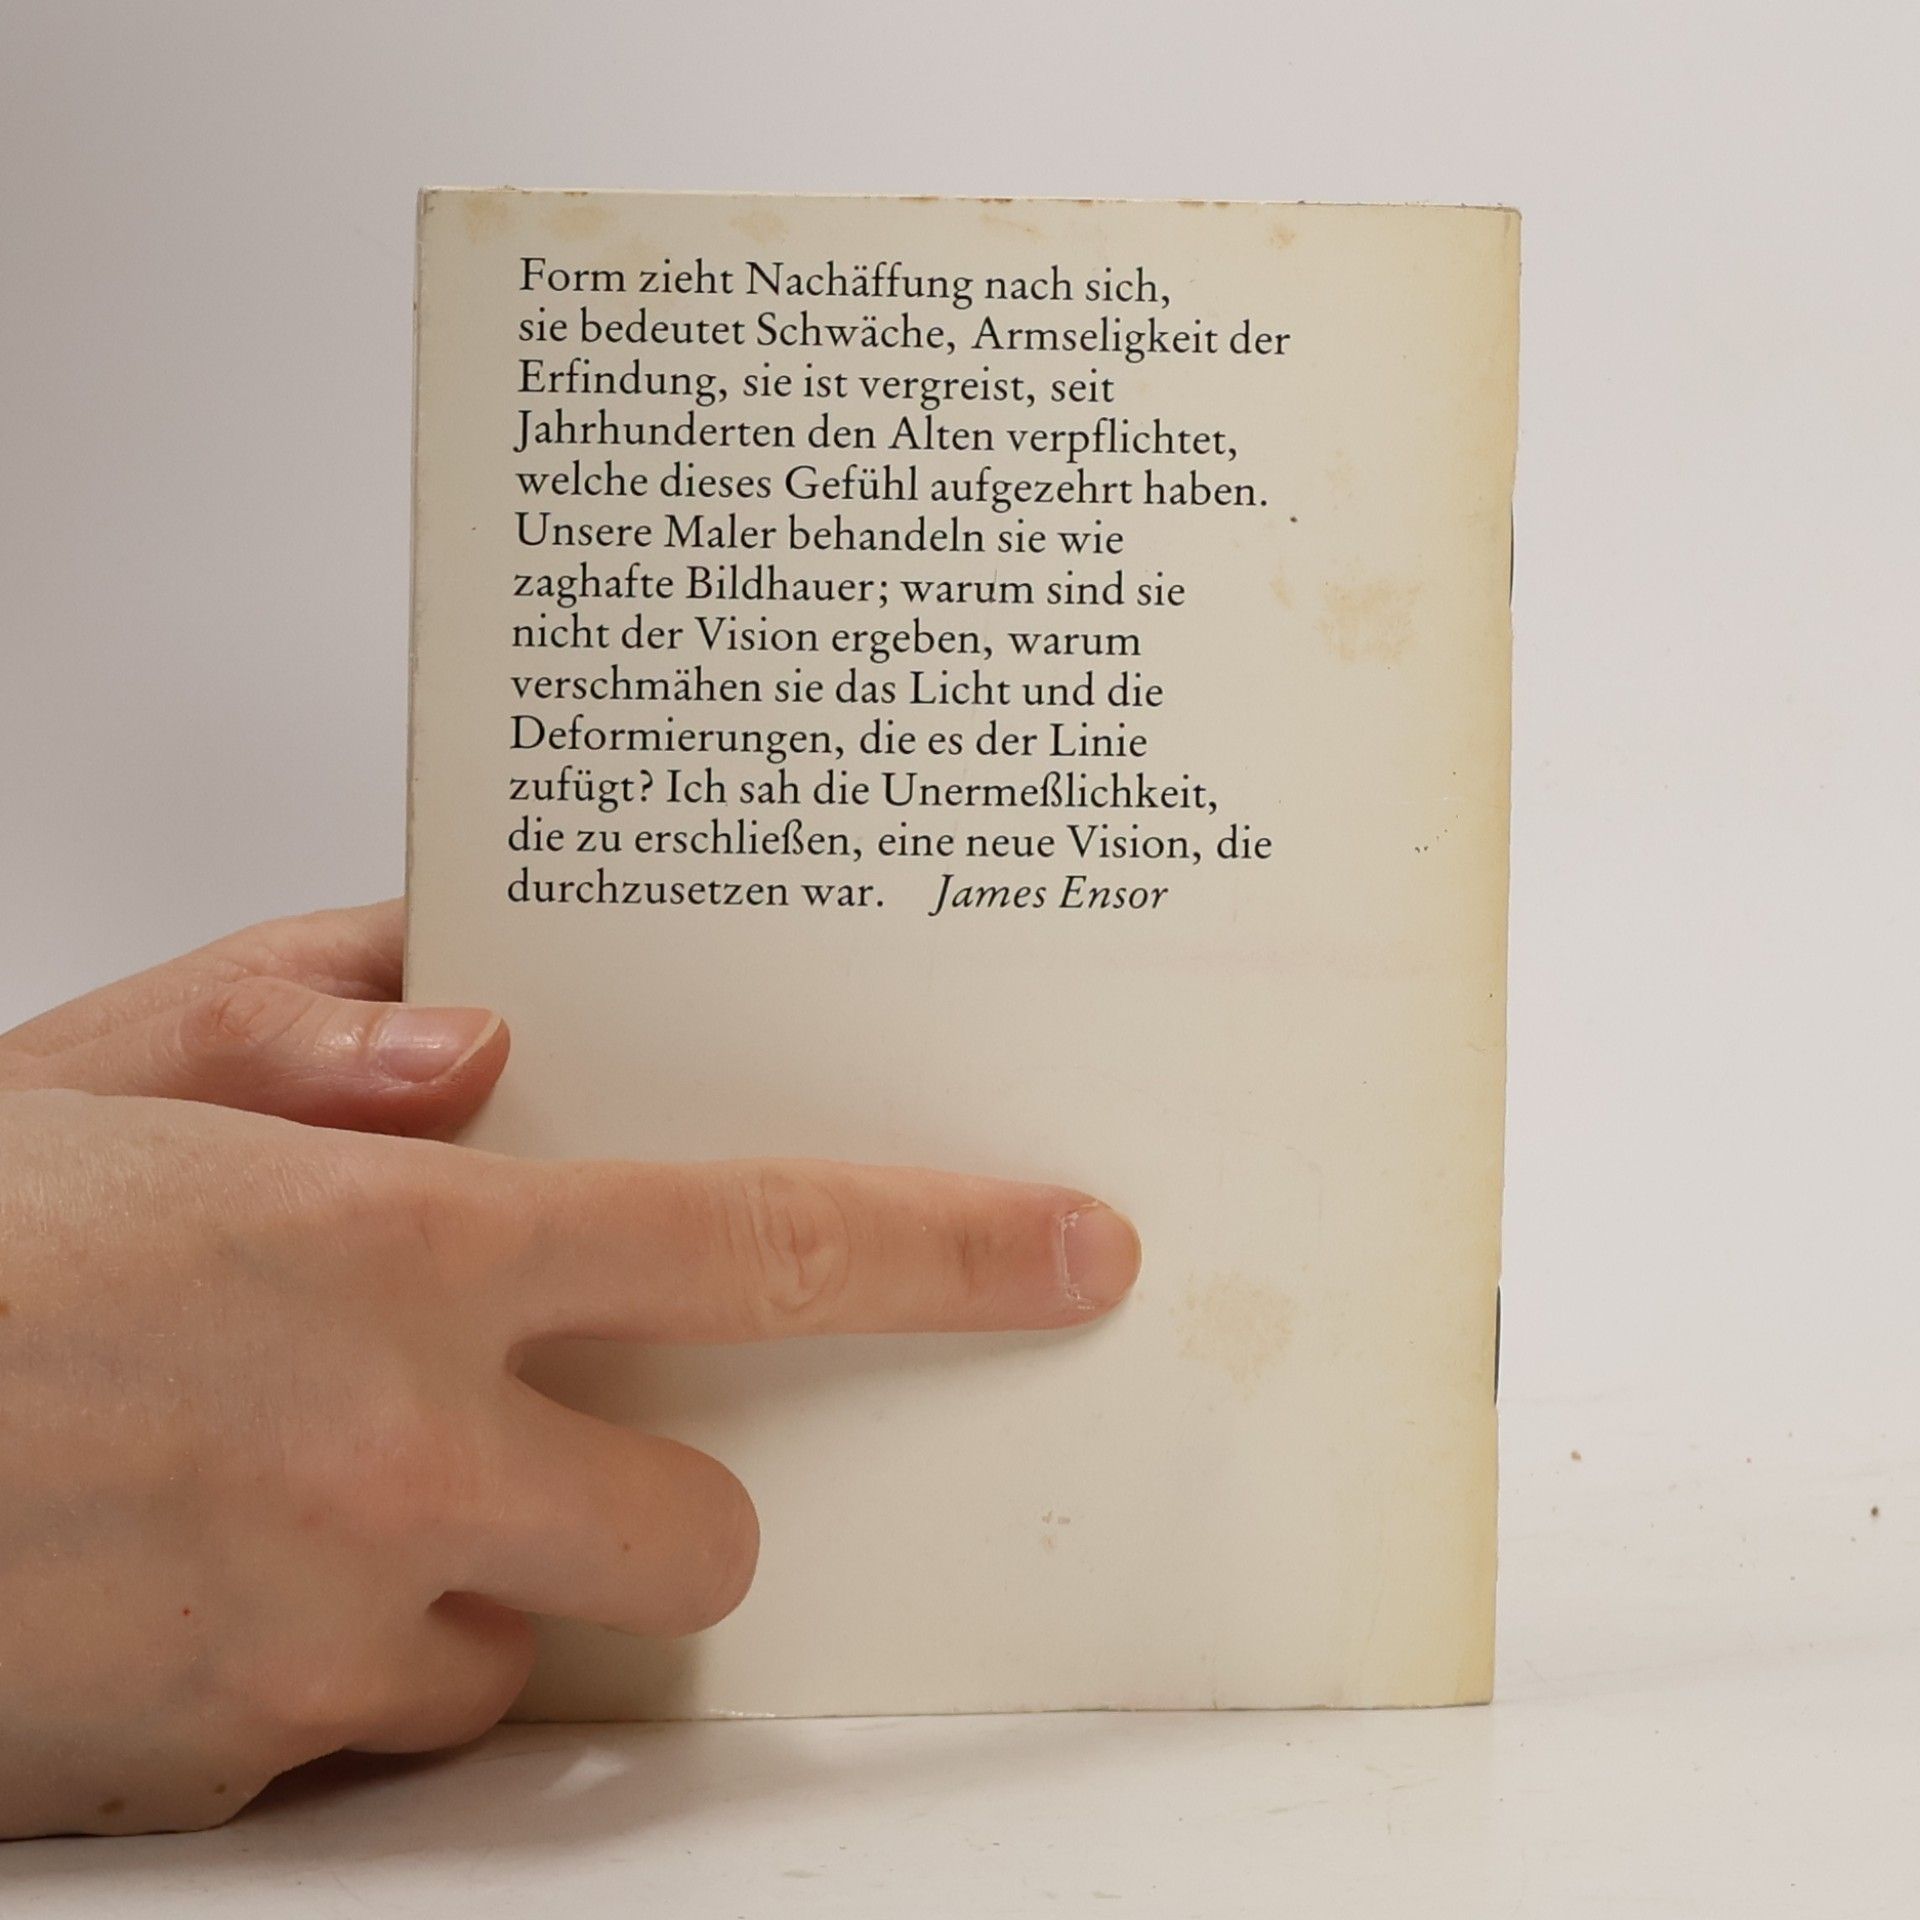 Form zieht Nachäffung nach sich,
sie bedeutet Schwäche, Armseligkeit der
Erfindung, sie ist vergreist, seit
Jahrhunderten den Alten verpflichtet,
welche dieses Gefühl aufgezehrt haben.
Unsere Maler behandeln sie wie
zaghafte Bildhauer; warum sind sie
nicht der Vision ergeben, warum
verschmähen sie das Licht und die
Deformierungen, die es der Linie
zufügt? Ich sah die Unermeßlichkeit,
die zu erschließen, eine neue Vision, die
durchzusetzen war. James Ensor